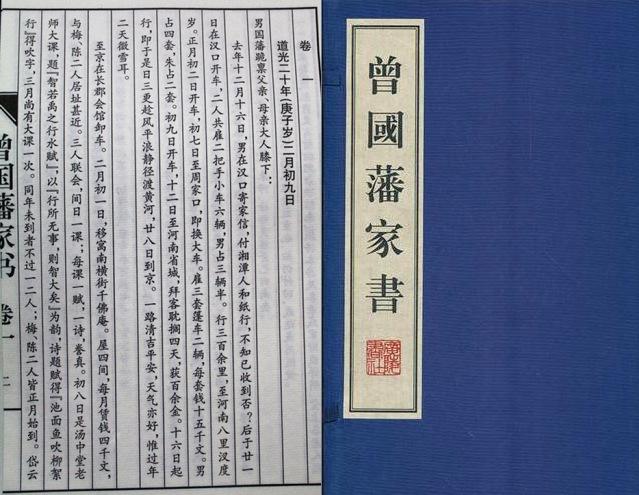 曾國藩家書
卷 一
道光二十年(庚子岁)二月初九日
男国藩跪禀父亲、母亲大人膝下:
去年十二月十六日,男在汉口寄家信,付湘潭人和纸行,不知已收到否?后于廿一
日在汉口开车,二人共雇二把手小车六辆,男占三辆半。行三百余里,至河南八里汊度
岁。正月初二日开车,初七日至周家口,即换大车。雇三套篷车二辆,每套钱十五千文。男
占四套,朱占二套。初九日开车,十二日至河南省城,拜客耽搁四天,获百余金。十六日起
行,即于是日三更趁风平浪静径渡黄河,廿八日到京。一路清吉平安,天气亦好,惟过年
二天微雪耳。
至京在长郡会馆卸车。二月初一日,移寓南横街千佛庵。屋四间,每月赁钱四千文,
与梅、陈二人居址甚近。三人联会,间日一课;每课一赋,一诗,誊真。初八日是汤中堂老
师大课,题『智若禹之行水赋』,以『行所无事,则智大矣』为韵,诗题赋得『池面鱼吹柳絮
行』得吹字,三月尚有大课一次。同年未到者不过一二人;梅、陈二人皆正月始到。岱云
曾国藩家书 卷一 二